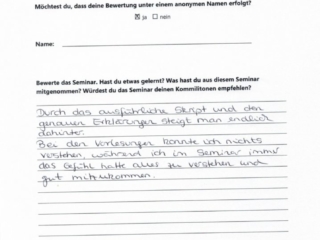 Möchtest du, dass deine Bewertung unter einem anonymen Namen erfolgt?
☒ ja ☐ nein
Name:
Bewerte das Seminar. Hast du etwas gelernt? Was hast du aus diesem Seminar
mitgenommen? Würdest du das Seminar deinen Kommilitonen empfehlen?
Durch das ausführliche Skript und den
genauen Erklärungen steigt man endlich
dahinter.
Bei den Vorlesungen konnte ich nichts
verstehen, während ich im Seminar immer
das Gefühl hatte alles zu verstehen und
gut mitzukommen.